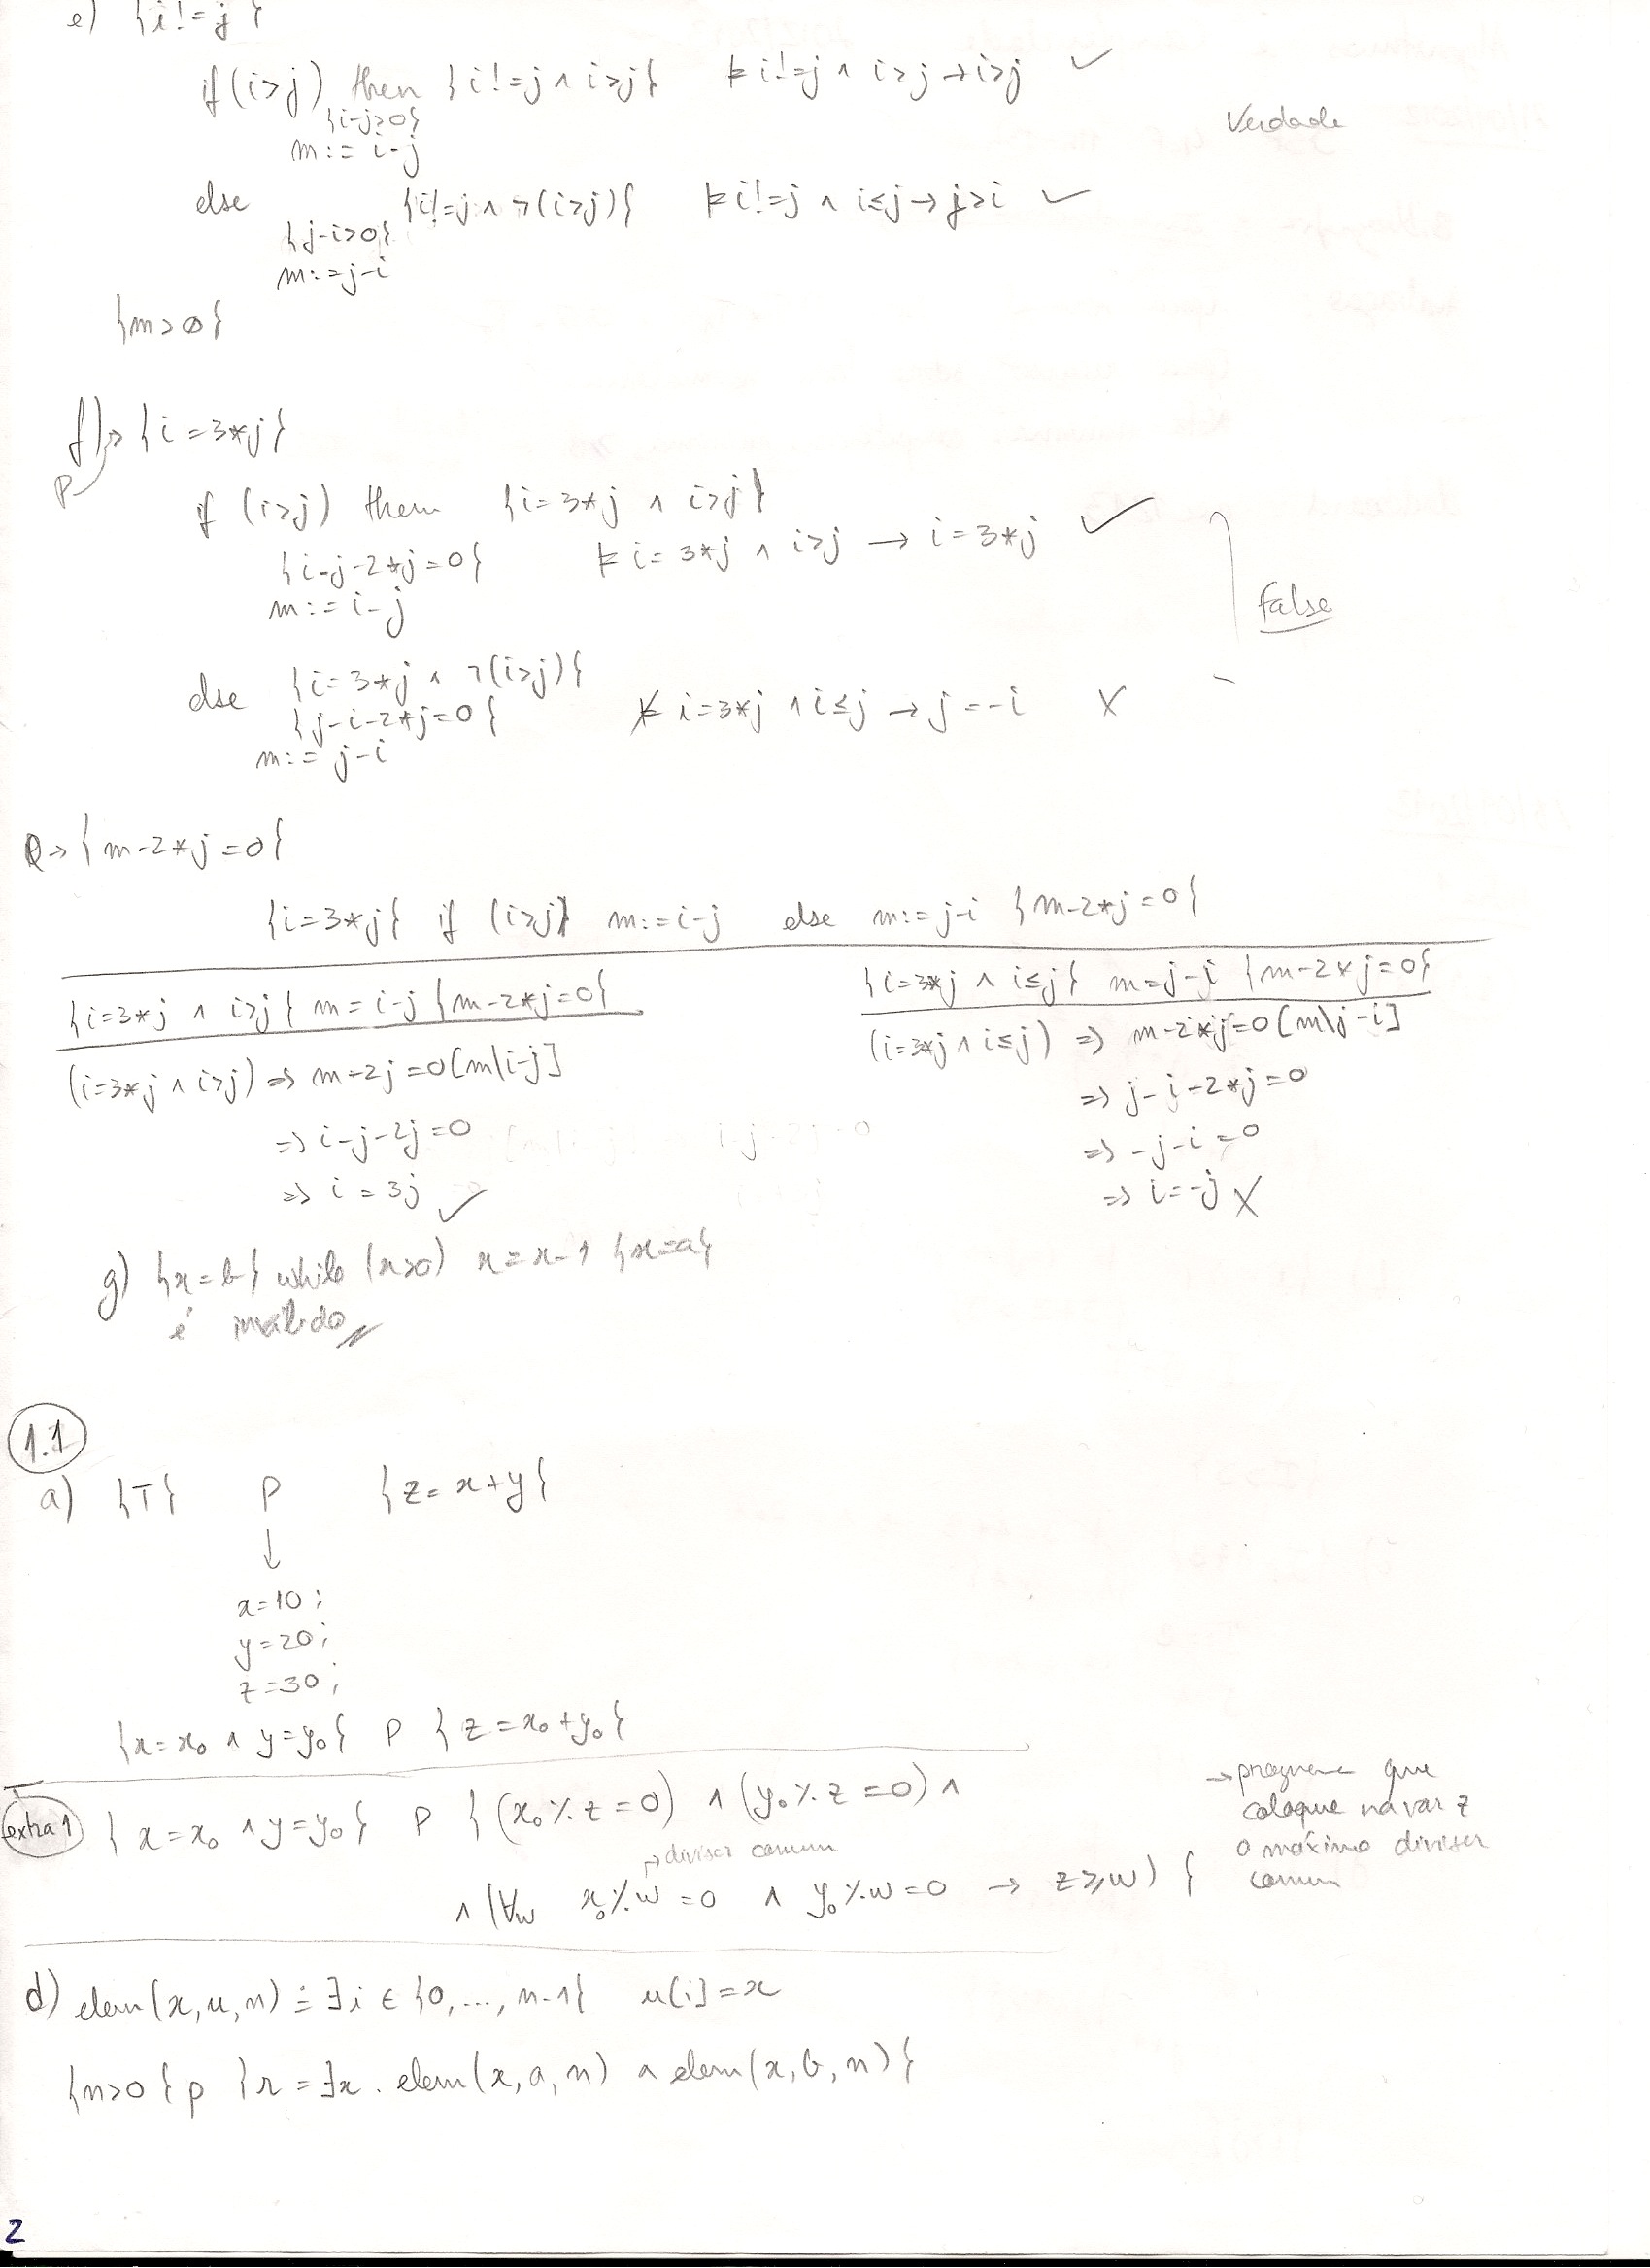 e) {i!=j}
if (i>j) then {i!=j ∧ i>j} ⊨ i!=j ∧ i>j → i>j ✓
{i-j>0}
m:= i-j
Verdade
else {i!=j ∧ ¬(i>j)} ⊨ i!=j ∧ i≤j → j>i ✓
{j-i>0}
m:=j-i
{m>0}
f) → {i=3*j}
P
if (i>j) then {i=3*j ∧ i>j}
{i-j-2*j=0} ⊨ i=3*j ∧ i>j → i=3*j ✓
m:= i-j
False
else {i=3*j ∧ ¬(i>j)}
{j-i-2*j=0} ⊭ i=3*j ∧ i≤j → j=-i X
m:= j-i
Q → {m-2*j=0}
{i=3*j} if (i>j) m:=i-j else m:=j-i {m-2*j=0}
{i=3*j ∧ i>j} m=i-j {m-2*j=0}
(i=3*j ∧ i>j) => m-2j=0[m\i-j]
=> i-j-2j=0
=> i=3j ✓
{i=3*j ∧ i≤j} m=j-i {m-2*j=0}
(i=3*j ∧ i≤j) => m-2*j=0[m\j-i]
=> j-i-2*j=0
=> -j-i=0
=> i=-j X
g) {x=b} while (x>0) x=x-1 {x=a}
é inválido
1.1
a) {T} P {z=x+y}
↓
x=10;
y=20;
z=30;
{x=x₀ ∧ y=y₀} P {z=x₀+y₀}
extra 1 {x=x₀ ∧ y=y₀} P {(x₀%z=0) ∧ (y₀%z=0) ∧
→ divisor comum
∧ (∀w x₀%w=0 ∧ y₀%w=0 → z≥w) }
→ programa que
coloque na var z
o máximo divisor
comum
d) elem(x,u,n) ≐ ∃i ∈ {0,...,n-1} u[i]=x
{n>0} p {r=∃x. elem(x,a,n) ∧ elem(x,b,n)}
2